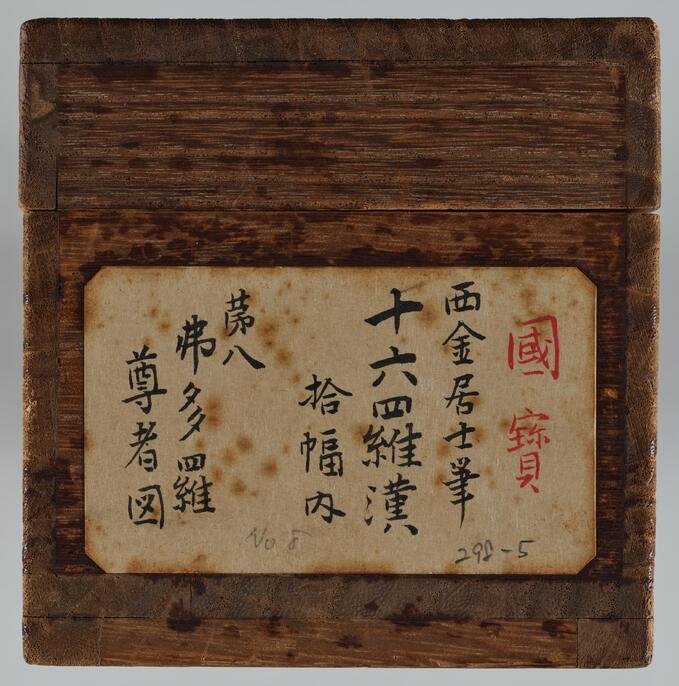 國寳
西金居士筆
十六羅漢
拾幅内
苐八
弗多羅
尊者図
No 8
298-5